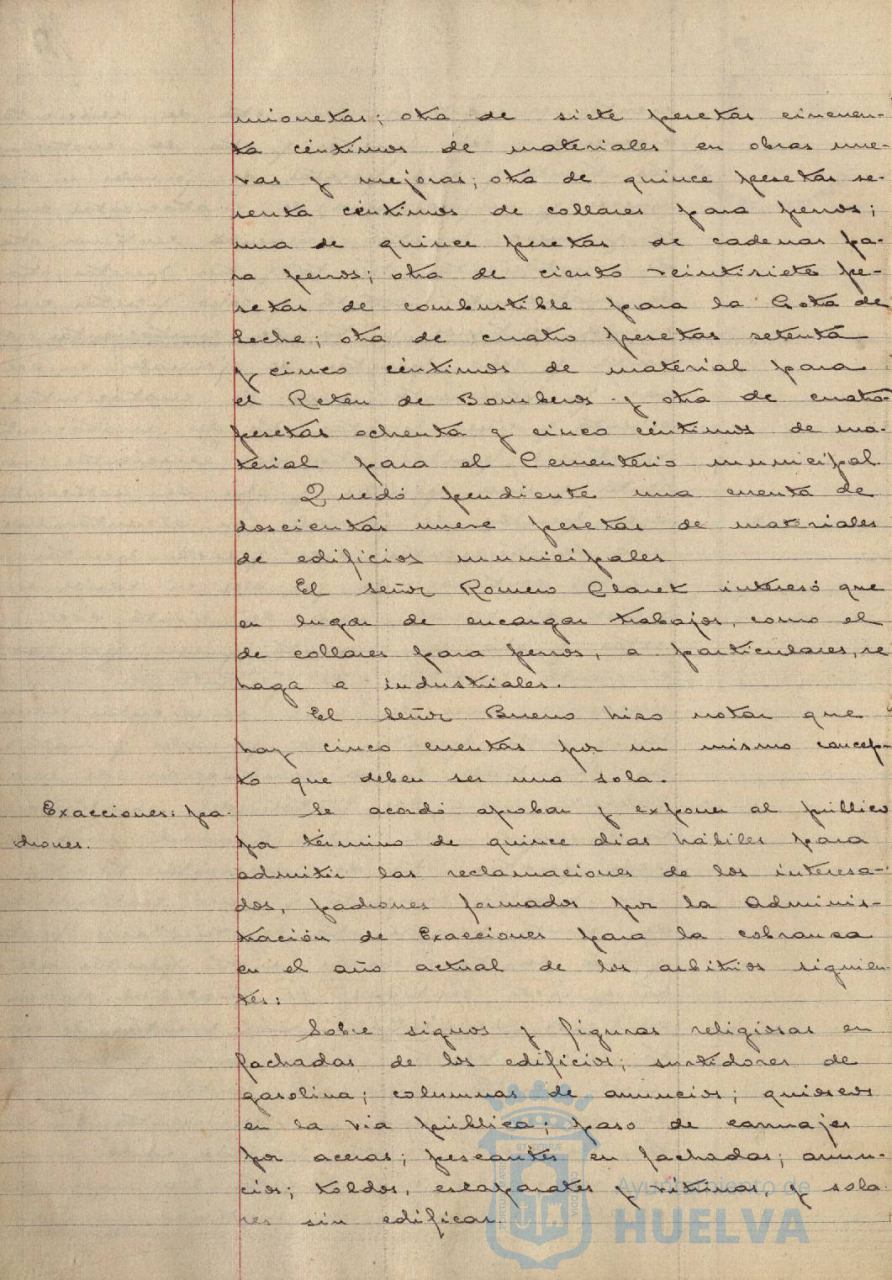 mionetas; otra de siete pesetas cincuen-
ta céntimos de materiales en obras nue-
vas y mejoras; otra de quince pesetas se-
senta céntimos de collares para perros;
una de quince pesetas de cadenas pa-
ra perros; otra de ciento veintisiete pe-
setas de combustible para la Gota de
Leche; otra de cuatro pesetas setenta
y cinco céntimos de material para
el Reten de Bomberos y otra de cuatro
pesetas ochenta y cinco céntimos de ma-
terial para el Cementerio municipal.
Quedó pendiente una cuenta de
doscientas nueve pesetas de materiales
de edificios municipales
El señor Romero Claret interesó que
en lugar de encargar trabajos, como el
de collares para perros, a particulares, se
haga a industriales.
El señor Bueno hizo notar que
hay cinco cuentas por un mismo concep-
to que deben ser una sola.
Exacciones: pa-
drones.
Se acordó aprobar y exponer al público
por término de quince dias hábiles para
admitir las reclamaciones de los interesa-
dos, padrones formados por la Adminis-
tración de Exacciones para la cobranza
en el año actual de los arbitrios siguien-
tes:
Sobre signos y figuras religiosas en
fachadas de los edificios; surtidores de
gasolina; columnas de anuncios; quioscos
en la via pública; paso de carruajes
por aceras; pescantes en fachadas; anun-
cios; toldos, escaparates y vitrinas, y sola-
res sin edificar.
Ayuntamiento de
HUELVA